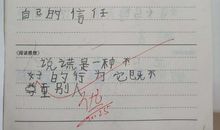 自己的信任
（阅读感想）
说谎是一种不
好的行为它既不
尊重别人
优